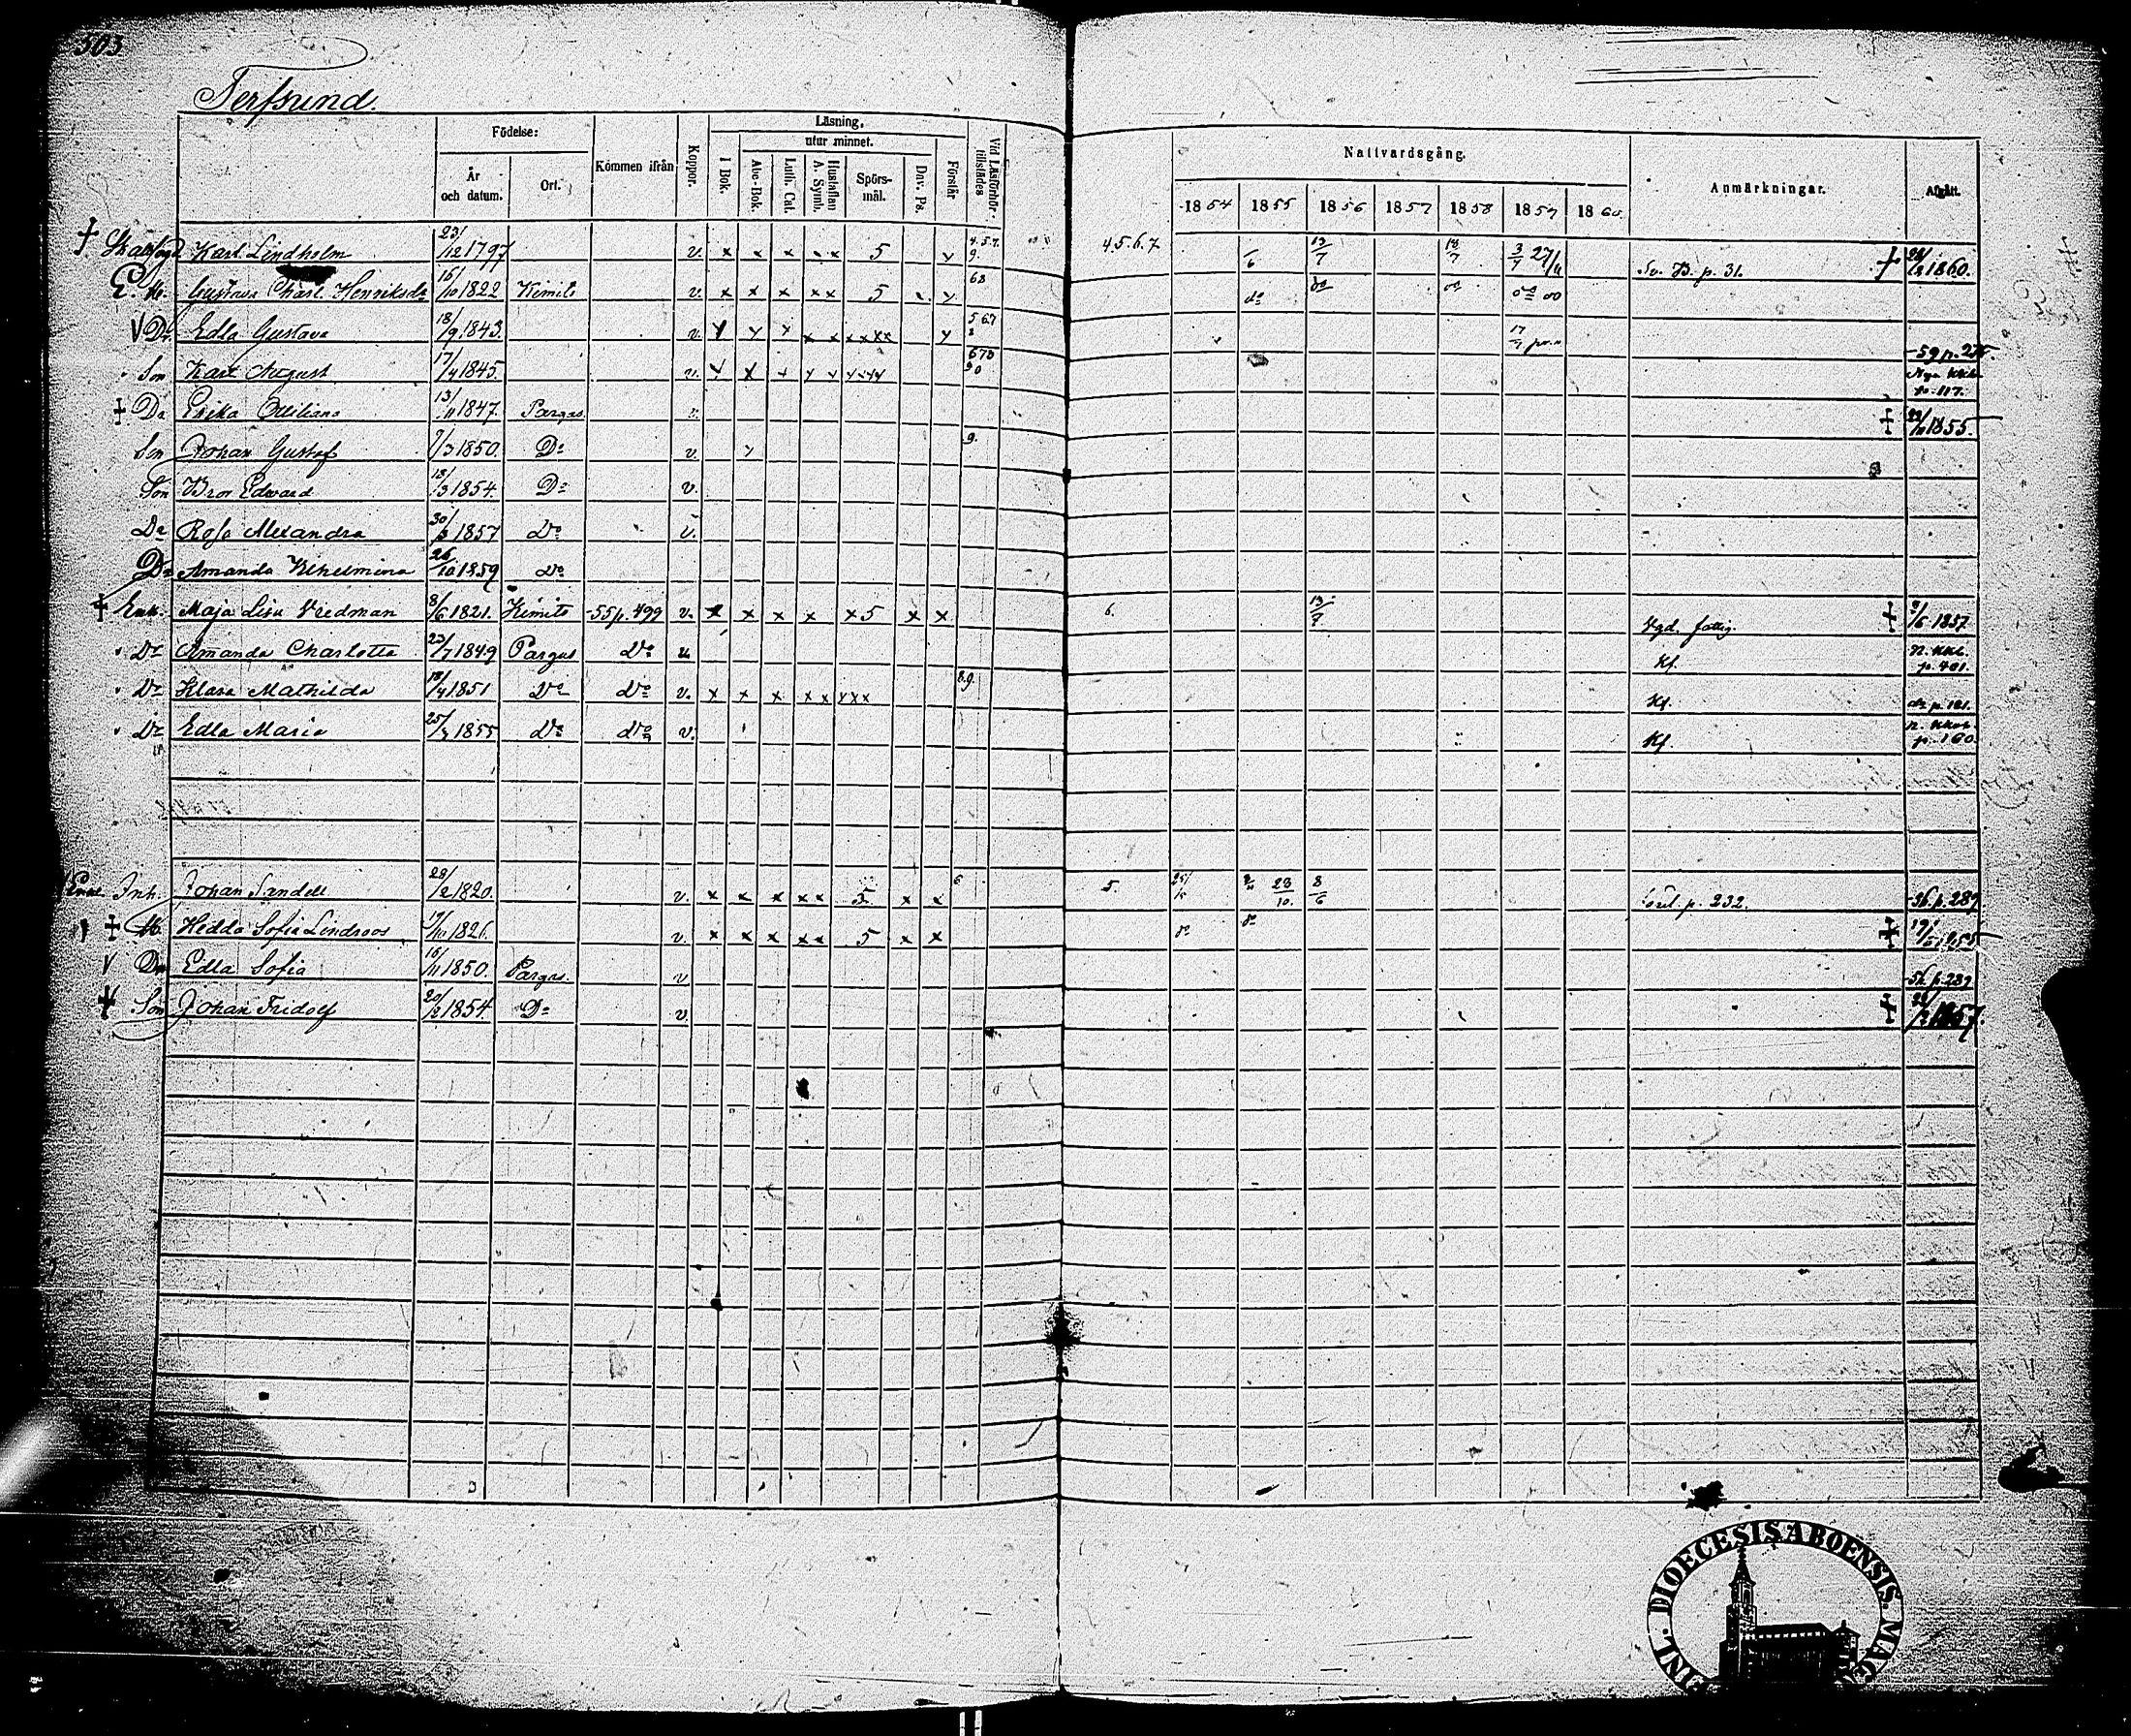 303
Terfsund.
Födelse: Kommen ifrån Koppor. Läsning, Vid Läsförhör tillstädes Nattvardsgång. Anmärkningar. Afgått.
År och datum. Ort. I Bok. utur minnet. Förstår 1854 1855 1856 1857 1858 1859 1860
Abc-Bok. Luth. Cat. Hustaflan A. Symb. Spörsmål. Dav. Ps.
† Karl Lindholm 23/12 1797 v. x x x x x 5 y 4.5.7. 9. 4.5.6.7 /6 13/7 18/7 3/7 27/11 Sv. B. p. 31. † /3 1860.
E. H. Gustava Charl. Henriksdr 16/10 1822 Kimito v. x x x x x 5 x y 68 do do do do do
V Dr. Edla Gustava 18/9 1843. v. y y y x x x x x x y 567 17/7 -59 p. 275.
Son Karl August 17/4 1845. v. 678 90 Nya KKb p. 117.
† Dr Erika Emiliana 13/11 1847. Pargas v. † 1855.
Son Johan Gustaf 9/3 1850. Do v. y 9.
Son Bror Edward 13/3 1854. Do v.
Dr Rosa Alexandra 30/3 1857 Do v.
Dr Amanda Wilhelmina 26/10 1859 Do
† Enk. Maja Lisa Viedman 8/6 1821. Kimito -55 p. 499 v. x x x x x 5 x x 6. 13/7 fattig. † /6 1857
Dr Amanda Charlotta 23/7 1849 Pargas Do v. Kf. n. KKb. p. 401.
Dr Klara Mathilda 18/4 1851 Do Do v. x x x x x x x x 8.9. Kf. p. 181.
Dr Edla Maria 25/3 1855 Do Do v. Kf. n. KKb. p. 160.
Inh. Johan Sandell 28/2 1820. v. x x x x x 5 x x 6 5. 23/10. 8/6 p. 232. -56 p. 289
† H. Hedda Sofia Lindroos 19/10 1826. v. x x x x x 5 x x do do † 19/5 1855
V Dr Edla Sofia 16/11 1850. Pargas. v -56 p. 289
† Son Johan Fridolf 20/2 1854. Do v. † 1857.
FINL. DIOECESIS ABOENSIS. MAG